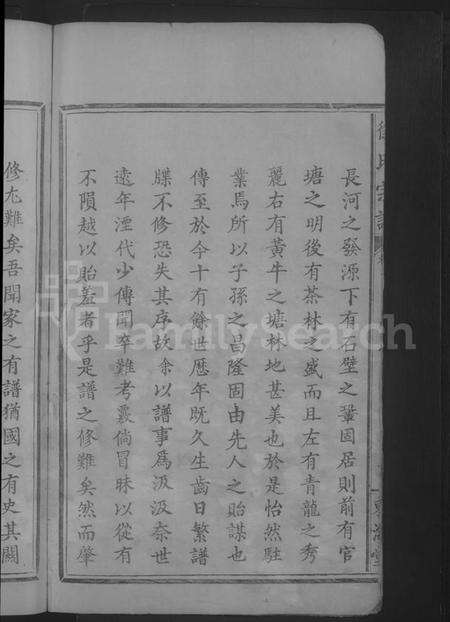 氏宗譜
長河之發源下有石壁之鞏固居則前有官
塘之明後有茶林之盛而且左有青龍之秀
麗右有黃牛之塘林地甚美也於是怡然駐
業焉所以子孫之昌隆固由先人之貽謀也
傳至於今十有餘世歷年既久生齒日繁譜
牒不修恐失其序故余以譜事爲汲汲奈世
遠年湮代少傳聞卒難考覈倘冒昧以從有
不隕越以貽羞者乎是譜之修難矣然而肇
修尤難矣吾聞家之有譜猶國之有史其關
FamilySearch